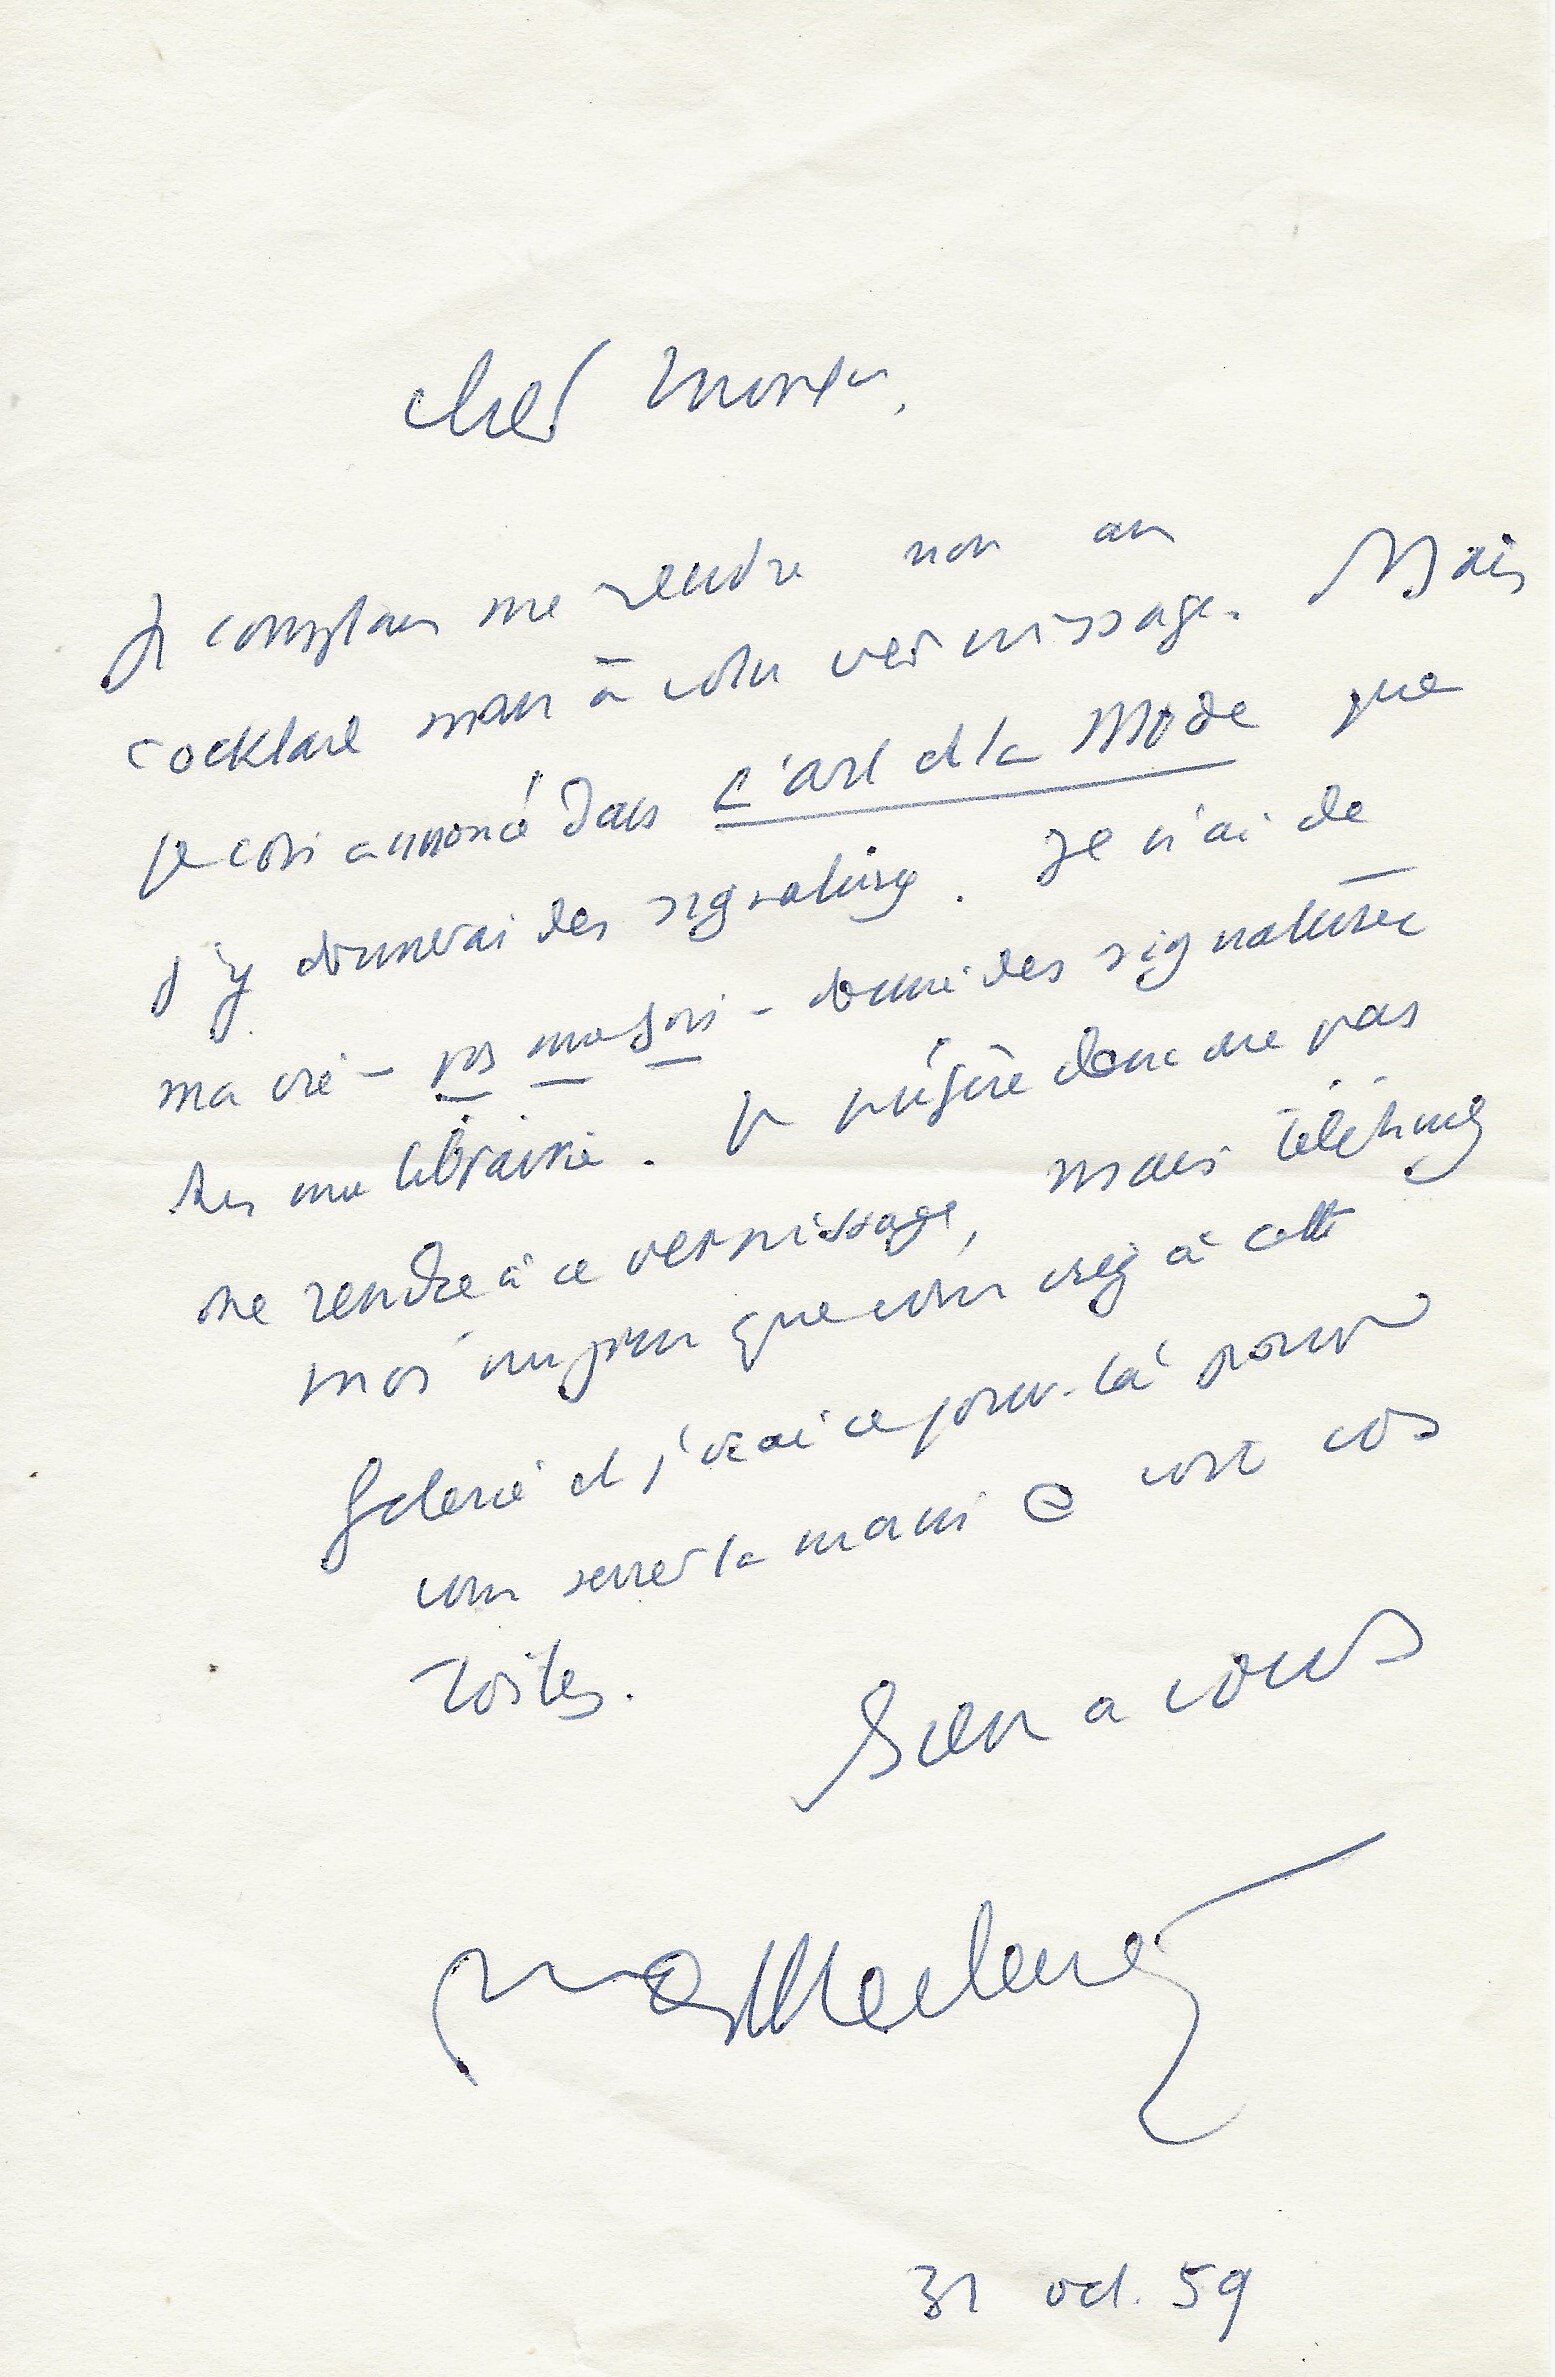 cher Monsieur,
Je comptais me rendre non au
cocktail mais à votre vernissage. Mais
je vois annoncé dans L'art et la Mode que
j'y donnerai des signatures. Je n'ai de
ma vie – pas une fois – donné des signatures
en librairie. Je préfère donc ne pas
me rendre à ce vernissage, mais téléphonez
moi un jour que vous irez à cette
galerie et j'irai ce jour-là pour
vous serrer la main & voir vos
toiles.
Bien à vous
31 oct. 59